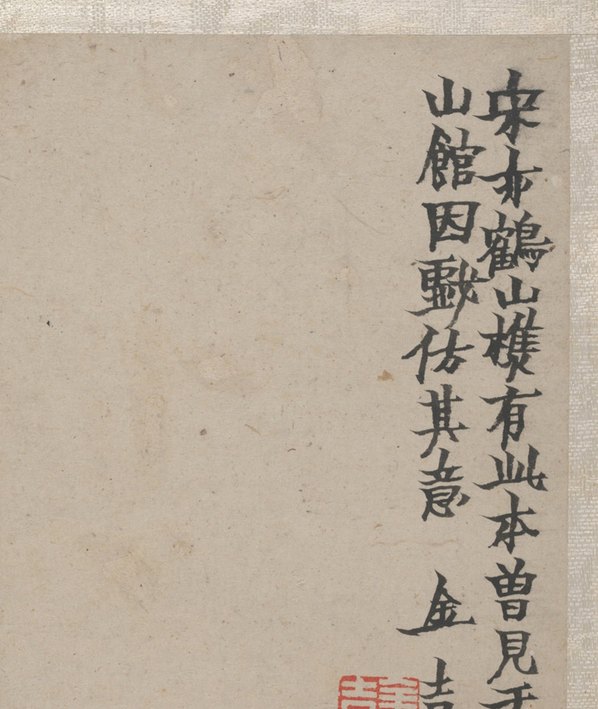 宋亦鶴山樵有此本曽見
山館因戲仿其意 金吉